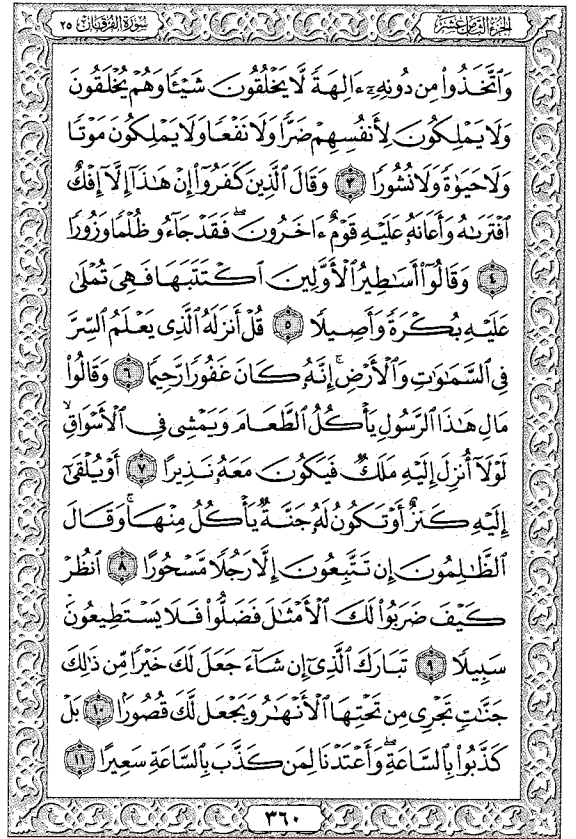 سُورَةُ الفُرْقَان ٢٥
الجُزْءُ الثَّامِنَ عَشَرَ
وَٱتَّخَذُوا۟ مِن دُونِهِۦٓ ءَالِهَةً لَّا يَخْلُقُونَ شَيْـًٔا وَهُمْ يُخْلَقُونَ
وَلَا يَمْلِكُونَ لِأَنفُسِهِمْ ضَرًّا وَلَا نَفْعًا وَلَا يَمْلِكُونَ مَوْتًا
وَلَا حَيَوٰةً وَلَا نُشُورًا ٣ وَقَالَ ٱلَّذِينَ كَفَرُوٓا۟ إِنْ هَـٰذَآ إِلَّآ إِفْكٌ
ٱفْتَرَىٰهُ وَأَعَانَهُۥ عَلَيْهِ قَوْمٌ ءَاخَرُونَ ۖ فَقَدْ جَآءُو ظُلْمًا وَزُورًا
٤ وَقَالُوٓا۟ أَسَـٰطِيرُ ٱلْأَوَّلِينَ ٱكْتَتَبَهَا فَهِىَ تُمْلَىٰ
عَلَيْهِ بُكْرَةً وَأَصِيلًا ٥ قُلْ أَنزَلَهُ ٱلَّذِى يَعْلَمُ ٱلسِّرَّ
فِى ٱلسَّمَـٰوَٰتِ وَٱلْأَرْضِ ۚ إِنَّهُۥ كَانَ غَفُورًا رَّحِيمًا ٦ وَقَالُوا۟
مَالِ هَـٰذَا ٱلرَّسُولِ يَأْكُلُ ٱلطَّعَامَ وَيَمْشِى فِى ٱلْأَسْوَاقِ ۙ
لَوْلَآ أُنزِلَ إِلَيْهِ مَلَكٌ فَيَكُونَ مَعَهُۥ نَذِيرًا ٧ أَوْ يُلْقَىٰٓ
إِلَيْهِ كَنزٌ أَوْ تَكُونُ لَهُۥ جَنَّةٌ يَأْكُلُ مِنْهَا ۚ وَقَالَ
ٱلظَّـٰلِمُونَ إِن تَتَّبِعُونَ إِلَّا رَجُلًا مَّسْحُورًا ٨ ٱنظُرْ
كَيْفَ ضَرَبُوا۟ لَكَ ٱلْأَمْثَـٰلَ فَضَلُّوا۟ فَلَا يَسْتَطِيعُونَ
سَبِيلًا ٩ تَبَارَكَ ٱلَّذِىٓ إِن شَآءَ جَعَلَ لَكَ خَيْرًا مِّن ذَٰلِكَ
جَنَّـٰتٍ تَجْرِى مِن تَحْتِهَا ٱلْأَنْهَـٰرُ وَيَجْعَل لَّكَ قُصُورًۢا ١٠ بَلْ
كَذَّبُوا۟ بِٱلسَّاعَةِ ۖ وَأَعْتَدْنَا لِمَن كَذَّبَ بِٱلسَّاعَةِ سَعِيرًا ١١
٣٦٠